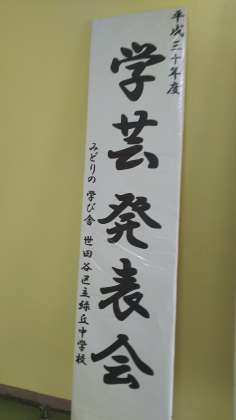 平成三十年度
学芸発表会
みどりの学び舎 世田谷区立緑丘中学校